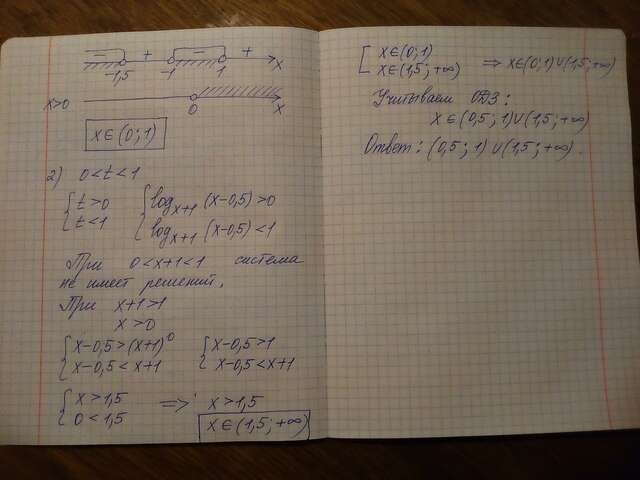 − + − + 
-1,5 -1 1 x
x>0 0 x
x∈(0;1)
2) 0<t<1
{ t>0 { log_{x+1} (x-0,5)>0
{ t<1 { log_{x+1} (x-0,5)<1
При 0<x+1<1 система
не имеет решений.
При x+1>1
x>0
{ x-0,5>(x+1)^0 { x-0,5>1
{ x-0,5<x+1 { x-0,5<x+1
{ x>1,5 => x>1,5
{ 0<1,5 x∈(1,5;+∞)
[ x∈(0;1)
[ x∈(1,5;+∞) => x∈(0;1)∪(1,5;+∞)
Учитываем ОДЗ:
x∈(0,5;1)∪(1,5;+∞)
Ответ: (0,5;1)∪(1,5;+∞).